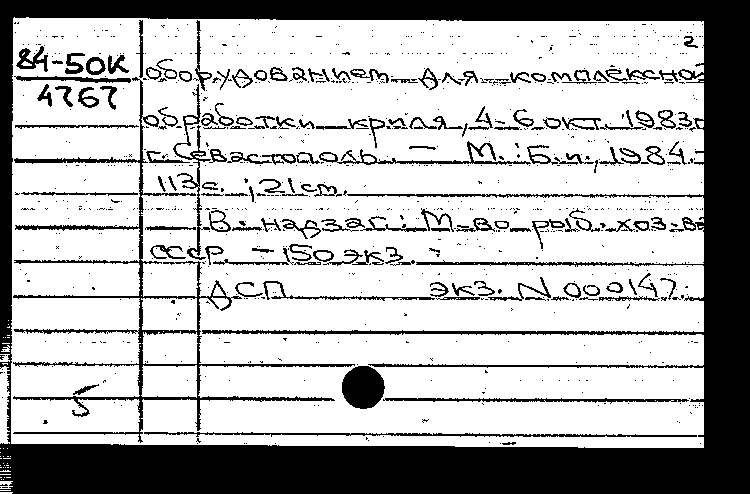 2
84-50К
4767
оборудованием для комплексной
обработки криля, 4-6 окт. 1983г
г. Севастополь. — М.: Б.и., 1984.-
113 с. ; 21 см.
В надзаг.: М-во рыб. хоз-ва
СССР. - 150 экз. -
ДСП экз. N 000147.
5